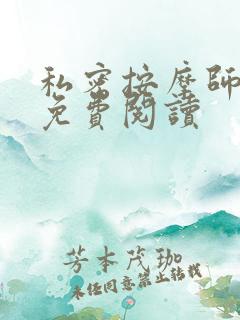 私密按摩師
免費閱讀
芳本茂珈
未經同意禁止轉載